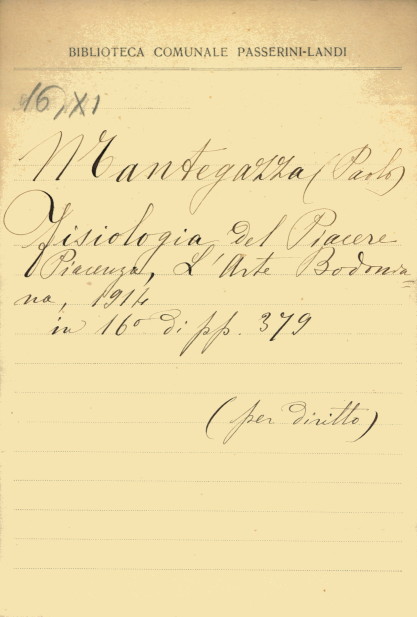 BIBLIOTECA COMUNALE PASSERINI-LANDI
16, XI
Mantegazza (Paolo)
Fisiologia del Piacere
Piacenza, L'Arte Bodonia=
na, 1914
in 16° di pp. 379
(per diritto)